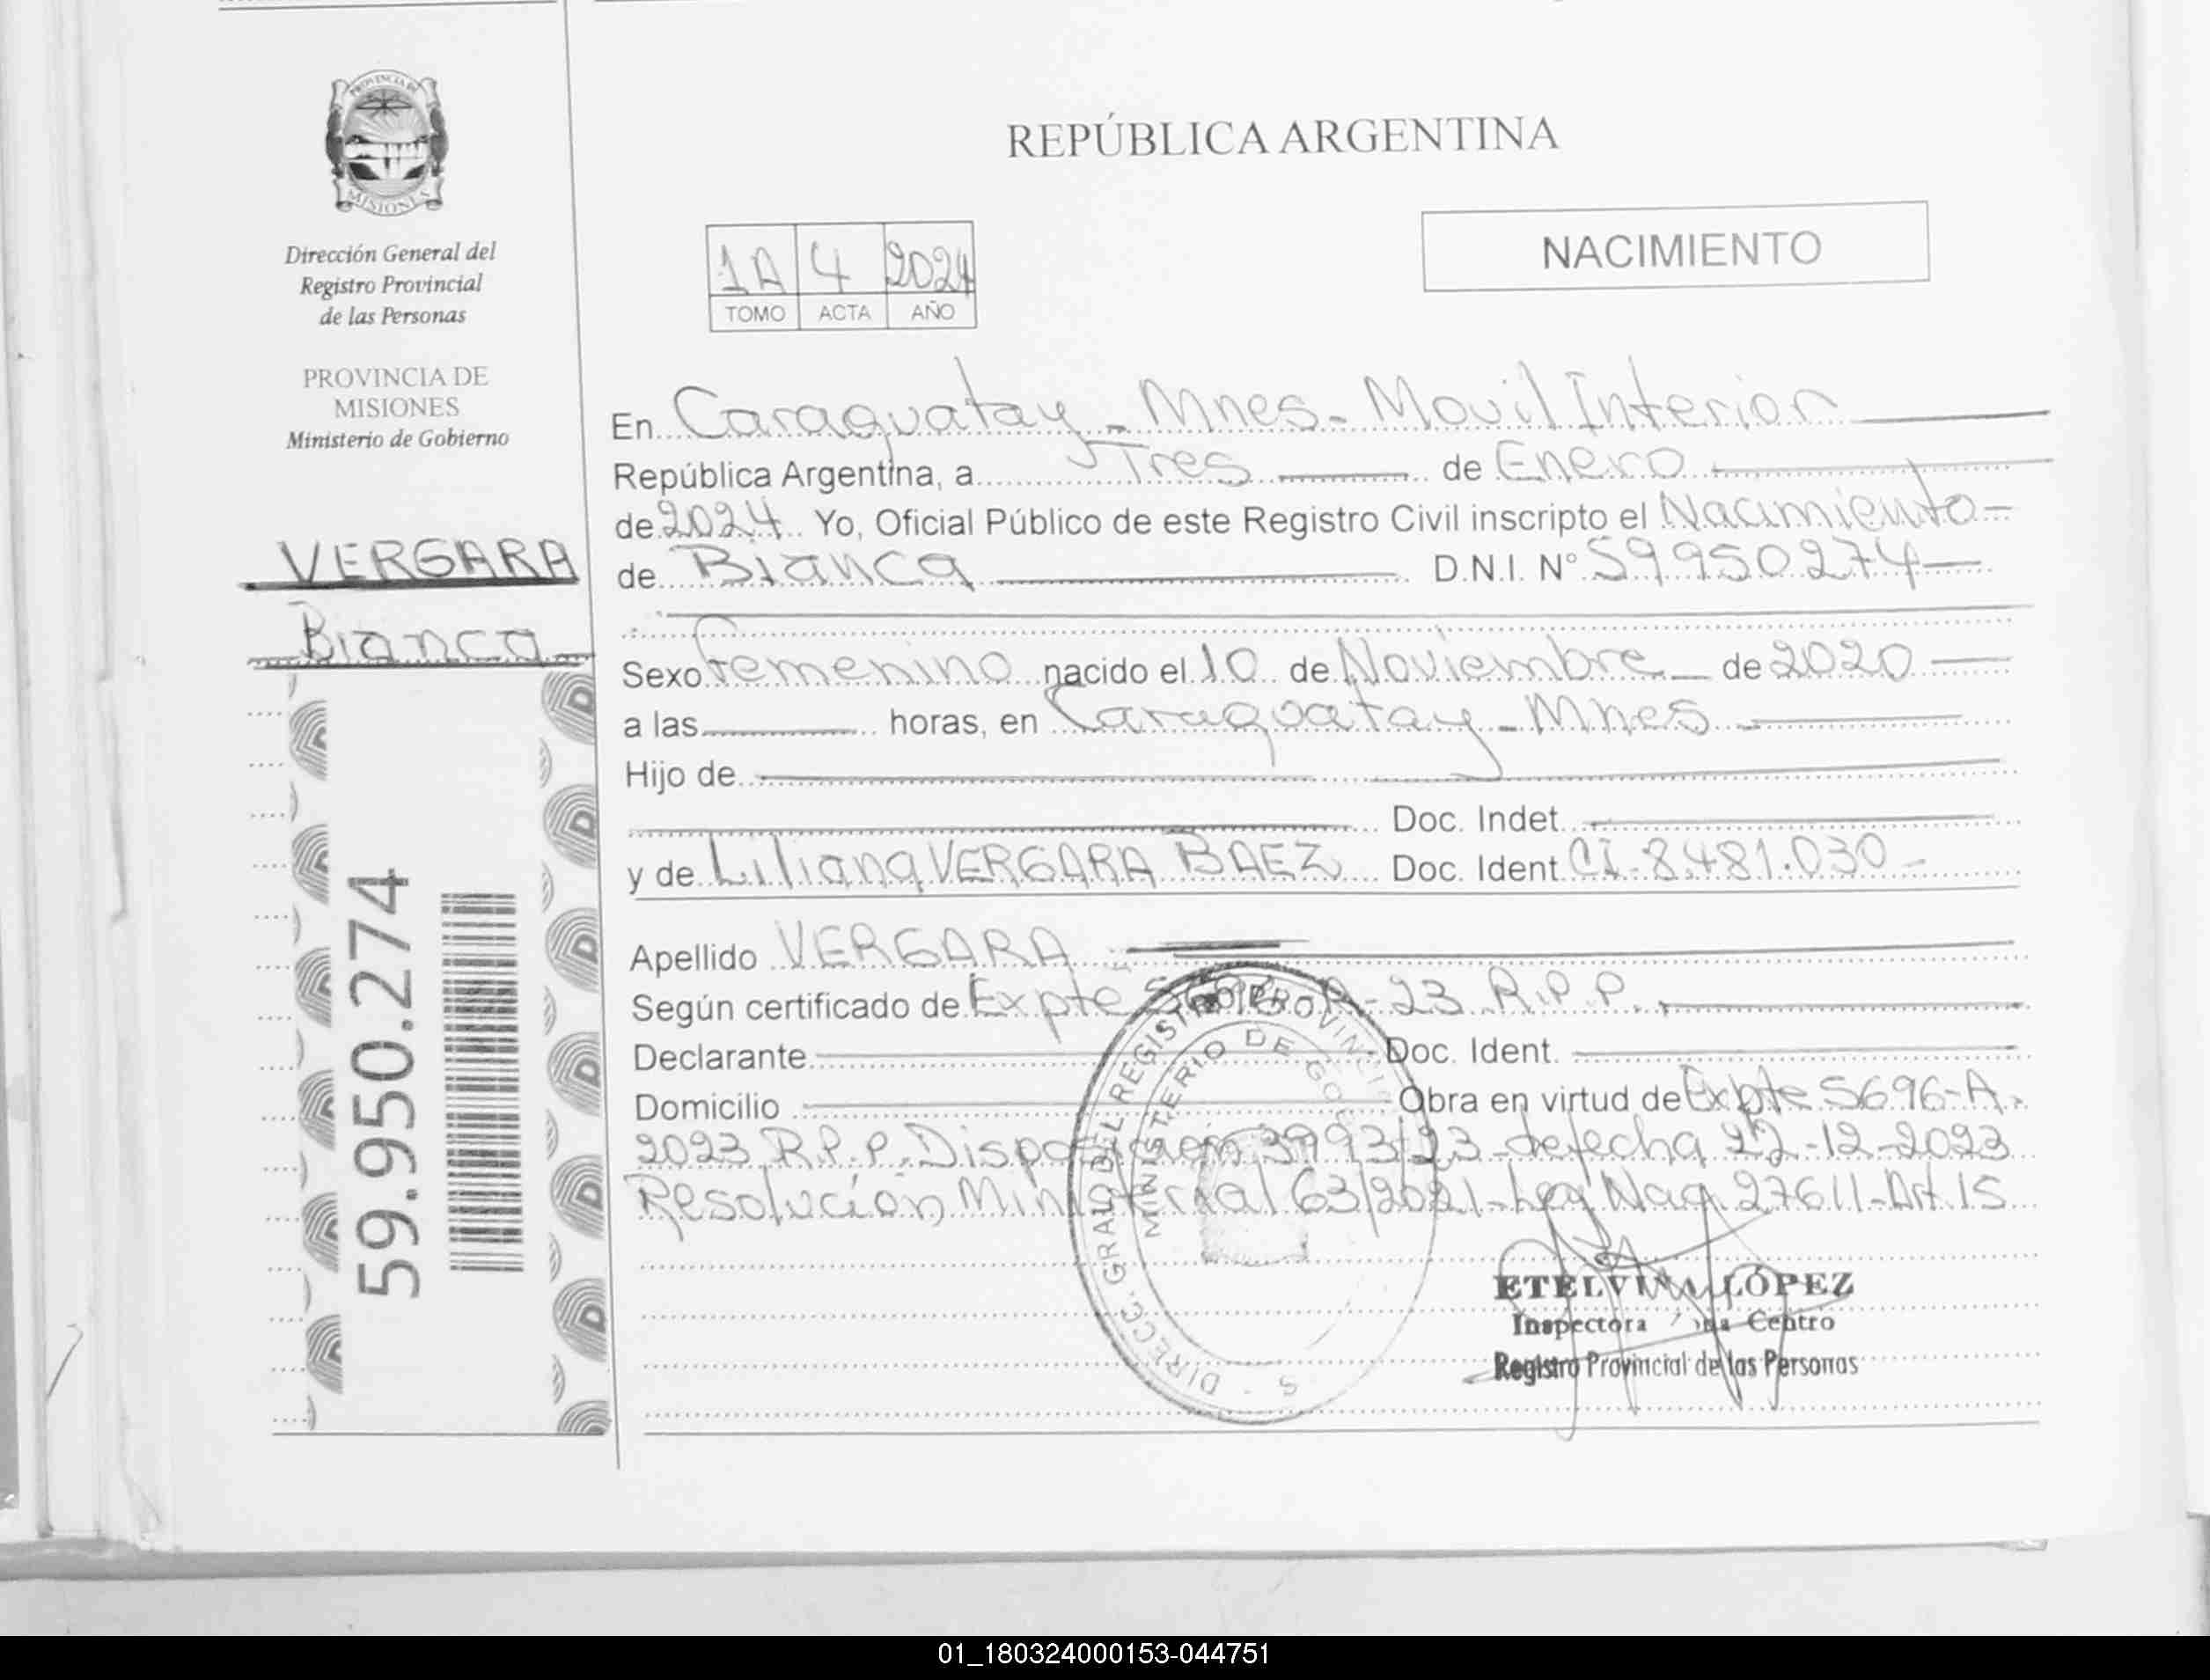 PROVINCIA DE
MISIONES
Dirección General del
Registro Provincial
de las Personas
PROVINCIA DE
MISIONES
Ministerio de Gobierno
VERGARA
Bianca
59.950.274
REPÚBLICA ARGENTINA
NACIMIENTO
1A 4 2024
TOMO ACTA AÑO
En Caraguatay - Mnes - Movil Interior
República Argentina, a Tres de Enero
de 2024 Yo, Oficial Público de este Registro Civil inscripto el Nacimiento
de Bianca D.N.I. N° 59950274
Sexo Femenino nacido el 10 de Noviembre de 2020
a las horas, en Caraguatay - Mnes
Hijo de
Doc. Indet.
y de Liliana VERGARA BAEZ Doc. Ident. CI-8.481.030
Apellido VERGARA
Según certificado de Expte 23 R.P.P.
Declarante Doc. Ident.
Domicilio Obra en virtud de Expte 5696-A-
2023 R.P.P. Disposicion 3993/23 de fecha 22-12-2023
Resolución Ministerial 63/2021-Ley Nac. 27611-Art. 15
DIRECC. GRAL DEL REGISTRO PROVINCIAL
MINISTERIO DE
ETELVINA LÓPEZ
Inspectora Zona Centro
Registro Provincial de las Personas
01_180324000153-044751